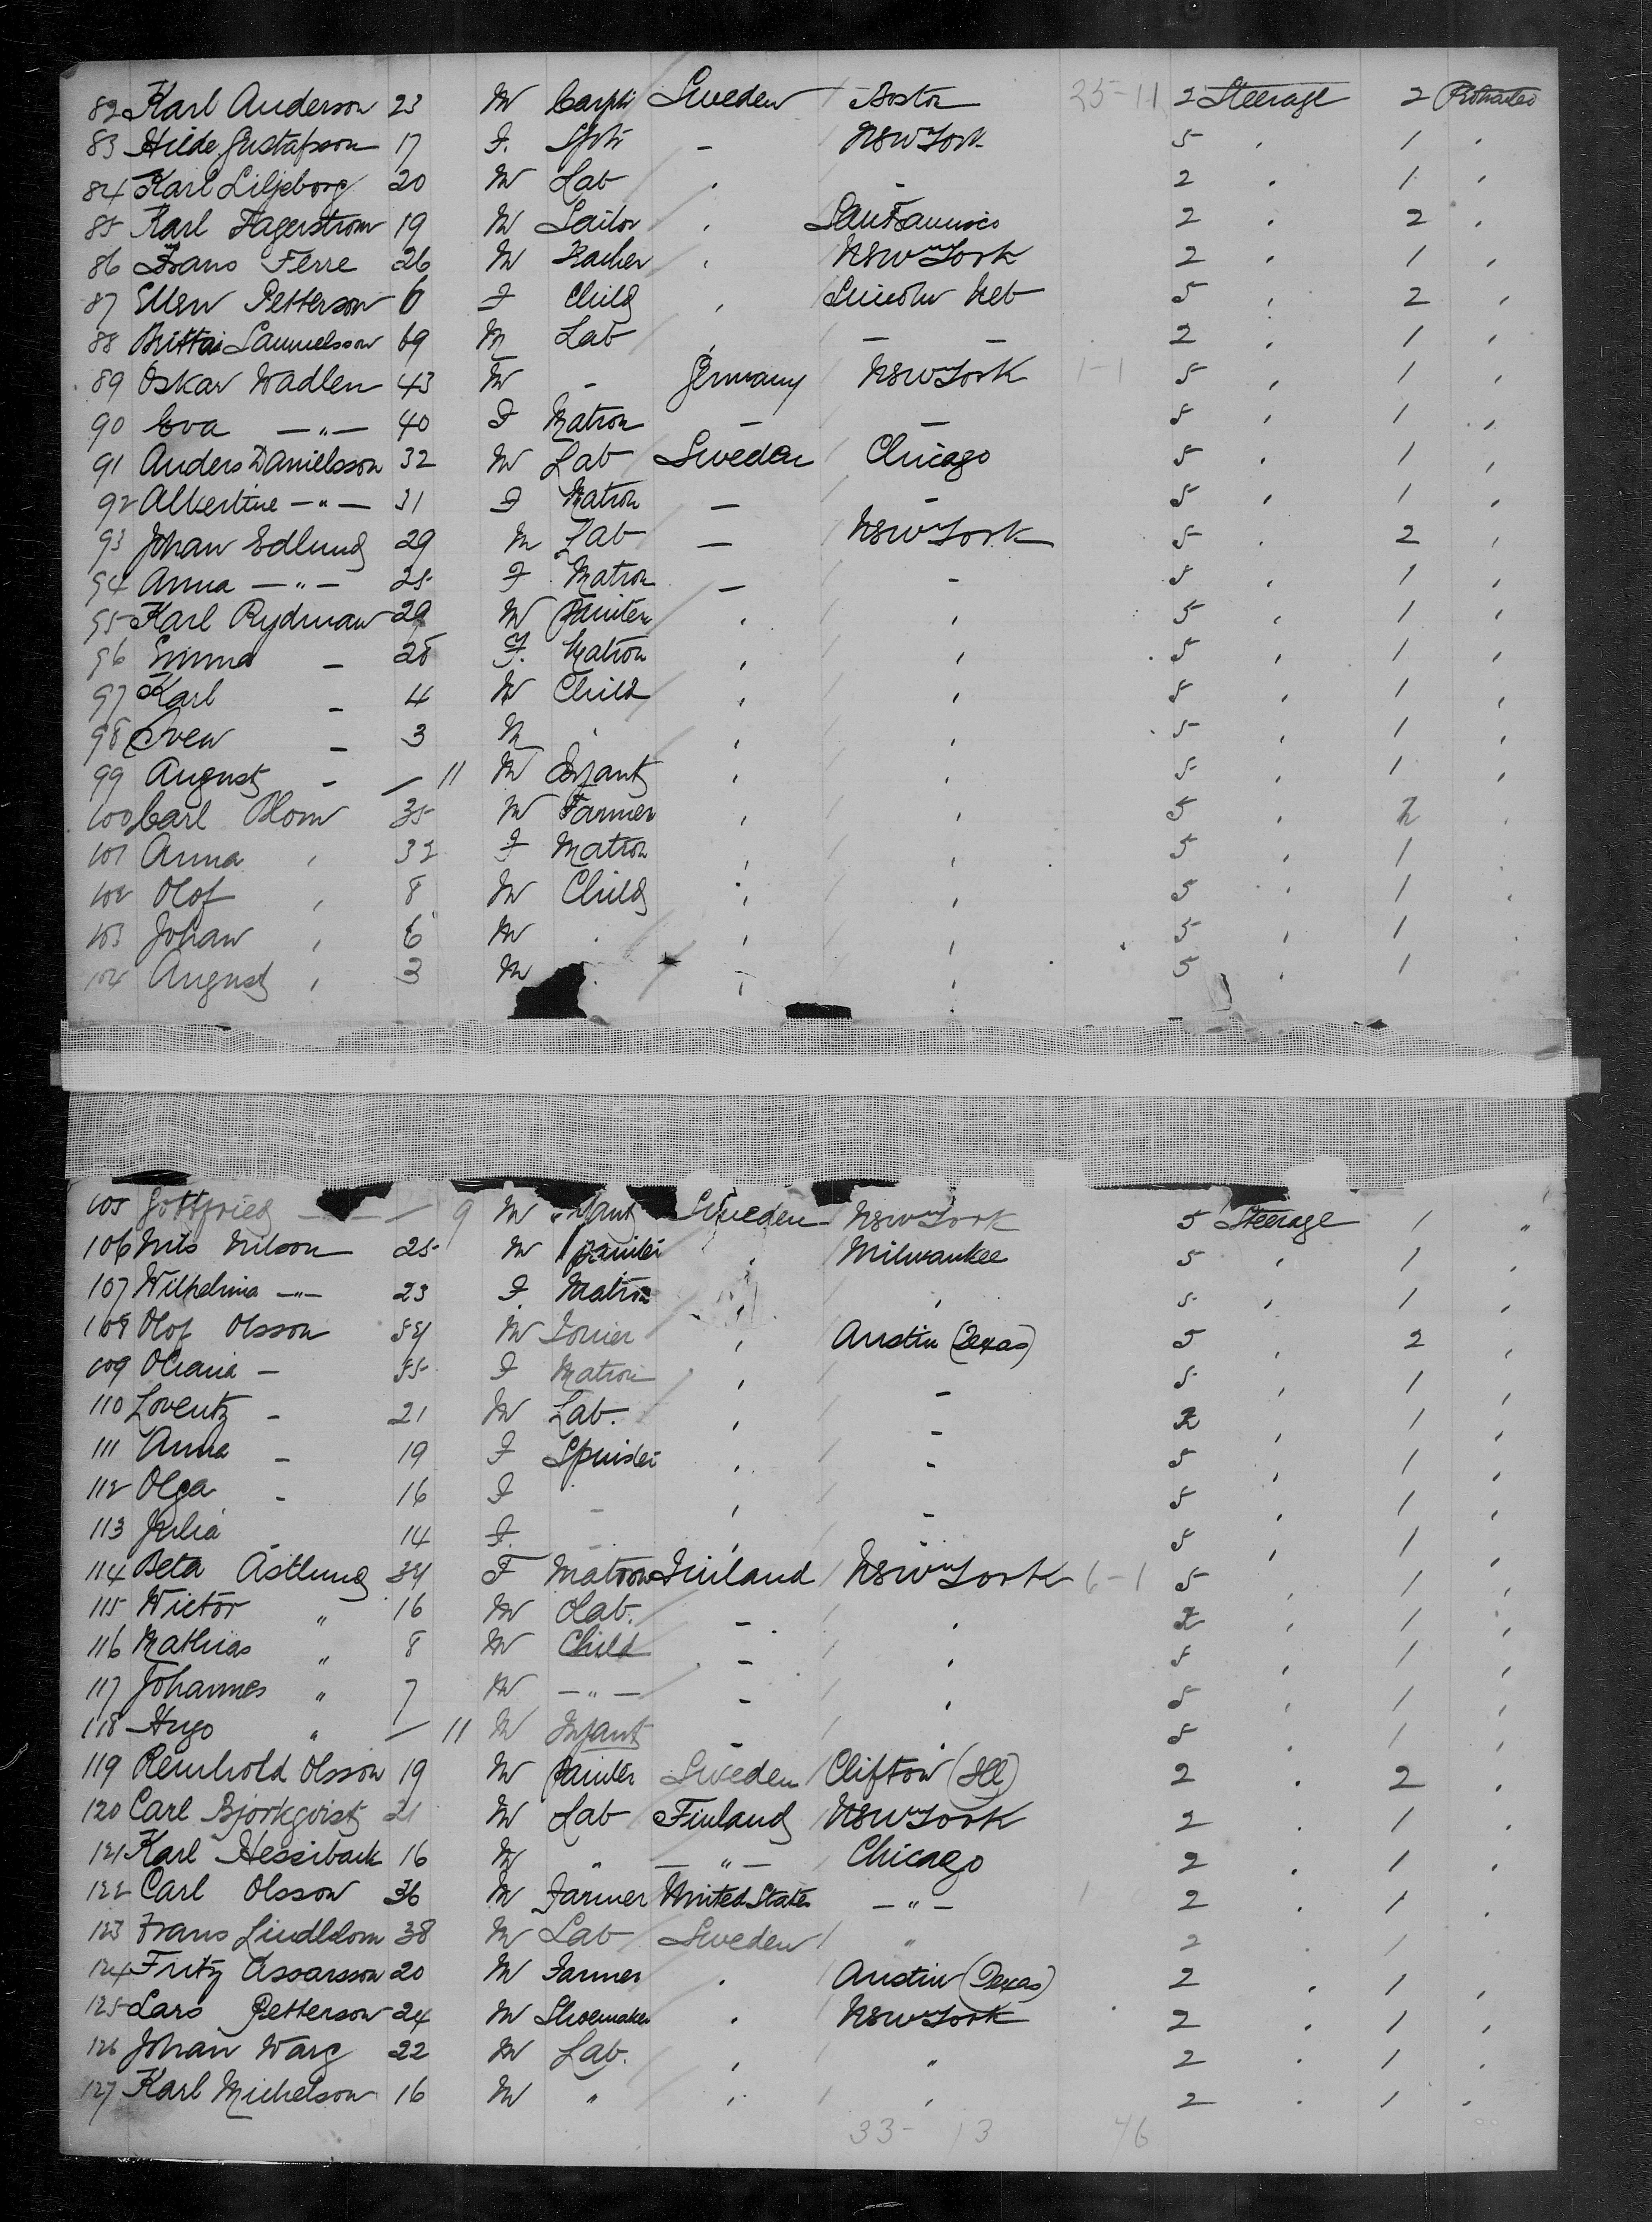 82 Karl Anderson 23 M Carptr Sweden Boston 25-11 2 Steerage 2 Protracted
83 Hilde Gustafsson 17 F. Spstr - New York 5 " 1 "
84 Karl Liljeborg 20 M Lab " - 2 " 1 "
85 Karl Fagerstrom 19 M Sailor " San Francisco 2 " 2 "
86 Frans Ferre 26 M " New York 2 " 1 "
87 Ellen Petterson 6 F Child " Lincoln Neb 5 " 2 "
88 Samuelsson 69 M Lab " - - 2 " 1 "
89 Oskar Wadlen 43 M - Germany New York 1-1 5 " 1 "
90 Eva -"- 40 F Matron - - 5 " 1 "
91 Anders Danielsson 32 M Lab Sweden Chicago 5 " 1 "
92 Albertine -"- 31 F Matron - - 5 " 1 "
93 Johan Edlund 29 M Lab - New York 5 " 2 "
94 Anna -"- 25 F Matron - - 5 " 1 "
95 Karl Rydman 29 M Painter " " 5 " 1 "
96 Emma - 28 F. Matron " " 5 " 1 "
97 Karl - 4 M Child " " 5 " 1 "
98 Sven - 3 M " " " 5 " 1 "
99 August - / 11 M Infant " " 5 " 1 "
100 Carl Blom 35 M Farmer " " 5 " 2 "
101 Anna " 32 F Matron " " 5 " 1
102 Olof " 8 M Child " " 5 " 1 "
103 Johan " 6 M " " " 5 " 1 "
104 August " 3 M " " " 5 " 1
105 Gottfried - / 9 M Infant Sweden New York 5 Steerage 1 "
106 Nils Nilson 25 M Painter " Milwaukee 5 " 1 "
107 Wilhelmina -"- 23 F. Matron " " 5 " 1 "
108 Olof Olsson 54 M " Austin (Texas) 5 " 2 "
109 - 55 F Matron " - 5 " 1 "
110 Lorentz - 21 M Lab. " - 2 " 1 "
111 Anna - 19 F Spinster " - 5 " 1 "
112 Olga - 16 F - " - 5 " 1 "
113 Julia - 14 F. - " - 5 " 1 "
114 Beta Åstlund 34 F Matron Finland New York 6-1 5 " 1 "
115 Wictor " 16 M Lab. - " 2 " 1 "
116 Mathias " 8 M Child - " 5 " 1 "
117 Johannes " 7 M -"- - " 5 " 1 "
118 Hugo " / 11 M Infant - " 5 " 1 "
119 Reinhold Olsson 19 M Painter Sweden Clifton (Ill) 2 " 2 "
120 Carl Bjorkqvist 21 M Lab Finland New York 2 " 1 "
121 Karl Hessiback 16 M " -"- Chicago 2 " 1 "
122 Carl Olsson 36 M Farmer United States -"- 1 2 " 1 "
123 Frans Lindblom 38 M Lab Sweden " 2 " 1 "
124 Fritz Assarsson 20 M Farmer " Austin (Texas) 2 " 1 "
125 Lars Petterson 24 M Shoemaker " New York 2 " 1 "
126 Johan Warg 22 M Lab. " " 2 " 1 "
127 Karl Michelson 16 M " " " 2 " 1 "
33- 13 46